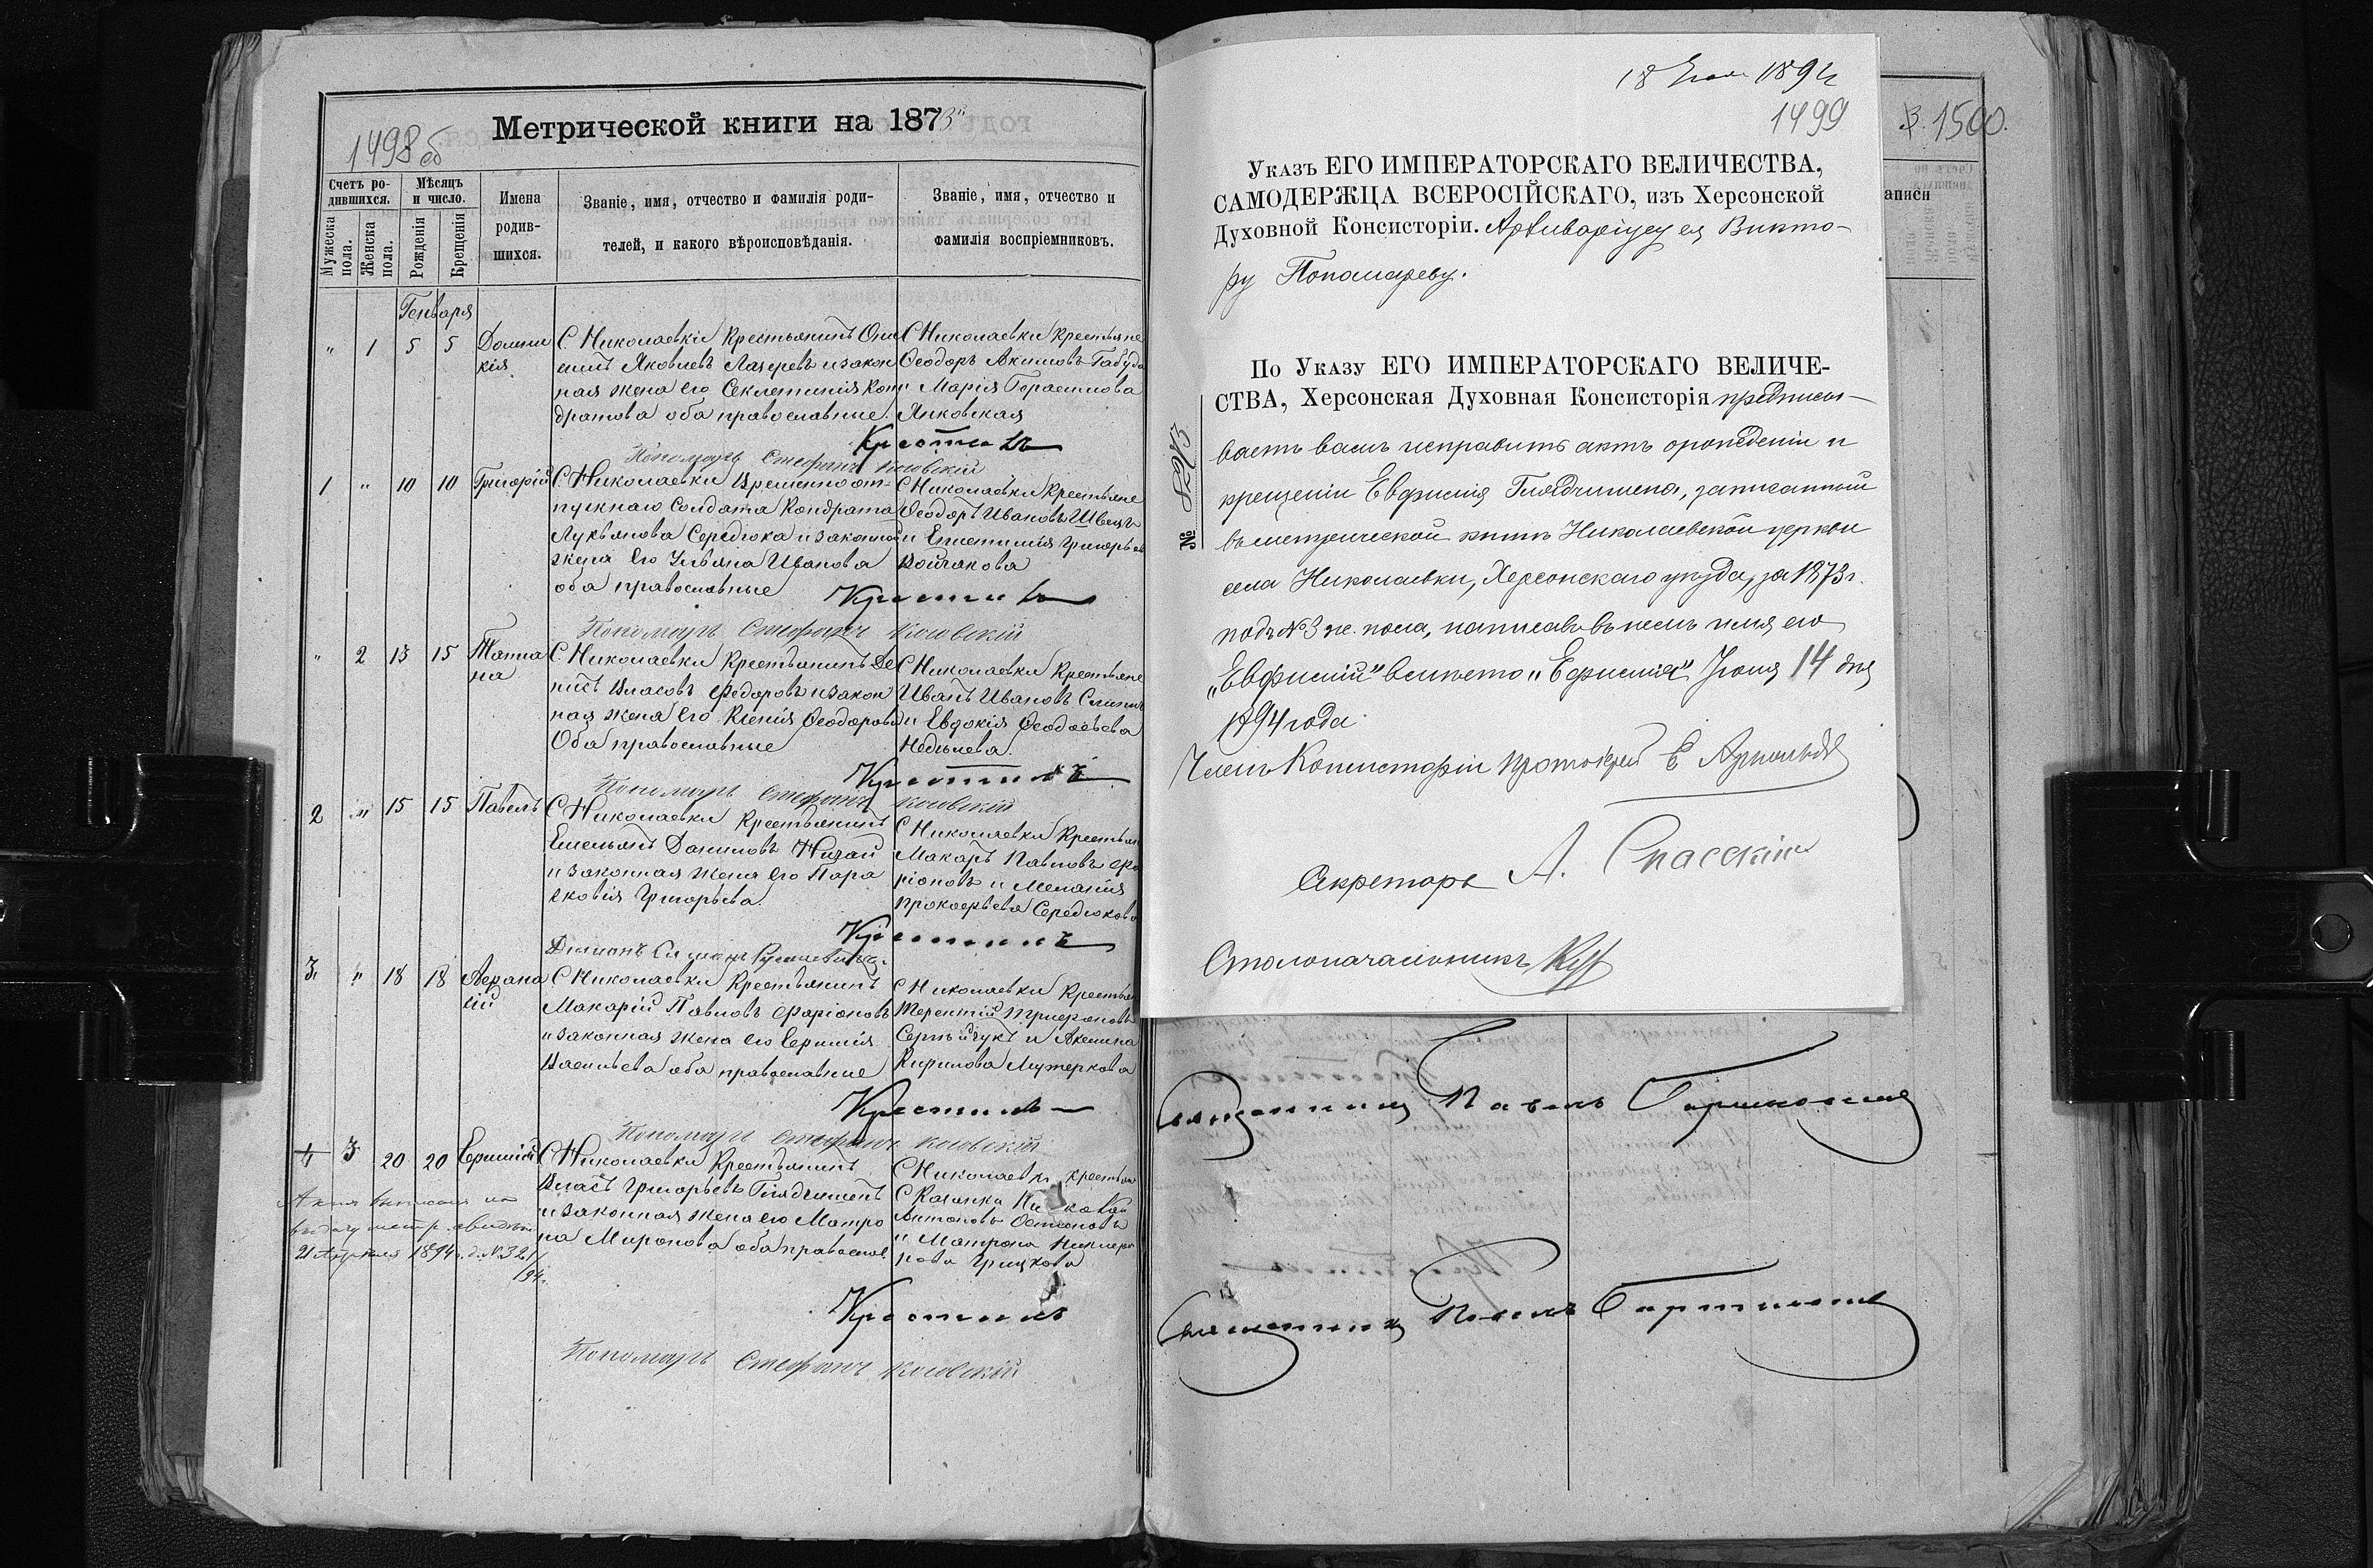 Метрической книги на 1873
1498 об
Счетъ ро-
дившихся.
Мѣсяцъ
и число.
Имена
родив-
шихся.
Званіе, имя, отчество и фамилія роди-
телей, и какого вѣроисповѣданія.
Званіе, имя, отчество и
фамилія воспріемниковъ.
Мужеска
пола.
Женска
пола.
Рожденія
Крещенія
Генваря
" 1 5 5 Домни
кія
С. Николаевки Крестьянинъ Они
симъ Яковлевъ Лазаревъ и закон
ная жена его Секлетинія Кон
дратова оба православные.
С Николаевки Крестьяне
Ѳеодоръ Акимовъ Габуда
и Марія Герасимова
Янковская
Крестилъ
Пономарь Стефанъ Косовскій
1 " 10 10 Григорій
С. Николаевки Временно от-
пускнаго Солдата Кондрата
Лукьянова Середюка и законной
жена его Ульяна Иванова
оба православные
С Николаевки Крестьяне
Ѳеодоръ Ивановъ Швецъ
и Епистимія Григорьева
Войчакова
Крестилъ
Пономарь Стефанъ Косовскій
" 2 13 15 Татиа
на
С. Николаевки Крестьянинъ Де
нисъ Власовъ Федоровъ и закон
ная жена его Ксенія Ѳеодорова
Оба православные
С Николаевки Крестьяне
Иванъ Ивановъ
и Евдокія Ѳеодосьева
Недѣлева.
Крестилъ
Пономарь Стефанъ Косовскій
2 " 15 15 Павелъ
С Николаевки Крестьянинъ
Емельянъ Даниловъ Ничай
и законная жена его Пара
сковія Григорьева.
С Николаевки Крестьян
Макаръ Павловъ Фа
ріоновъ и Меланія
Прокофьева Середюкова
Крестилъ
3 " 18 18 Афана
сій
С Николаевки Крестьянинъ
Макарій Павловъ Фаріоновъ
и законная жена его Ефимія
Васильева оба православные
С Николаевки Крестьян
Терентій Трифоновъ
и Аксинія
Кирилова
Крестилъ
Пономарь Стефанъ Косовскій
4 3 20 20 Ефимій
С Николаевки Крестьянинъ
Власъ Григорьевъ Глядчишенъ
и законная жена его Матро
на Миронова оба православ.
С Николаевки крестьян
Антоновъ
и Матрона Никифо
рова Грицкова
Актъ выписанъ на
выдачу метр. свидѣт.
21 Апрѣля 1894 г. д. № 321/
94 г.
Крестилъ
Пономарь Стефанъ Косовскій
18 1894
1499
3. 1500.
аписи
Указъ ЕГО ИМПЕРАТОРСКАГО ВЕЛИЧЕСТВА,
САМОДЕРЖЦА ВСЕРОСІЙСКАГО, изъ Херсонской
Духовной Консисторіи. Архиваріусу ея Викто-
ру Пономареву.
По Указу ЕГО ИМПЕРАТОРСКАГО ВЕЛИЧЕ-
СТВА, Херсонская Духовная Консисторія предписы-
ваетъ вамъ исправить актъ о рожденіи и
крещеніи Евфимія Глядчишена, записанный
въ метрической книгѣ Николаевской церкви
села Николаевки, Херсонскаго уѣзда, за 1873 г.
подъ № 3 ж. пола, написавъ въ немъ имя его
"Евфимій" вмѣсто "Ефимія" Іюня 14 дня
1894 года.
№ 8243
Членъ Консисторіи Протоіерей Е Арнольдъ
Секретарь А. Спасскій
Столоначальникъ
Священникъ Павелъ
Священникъ Павелъ